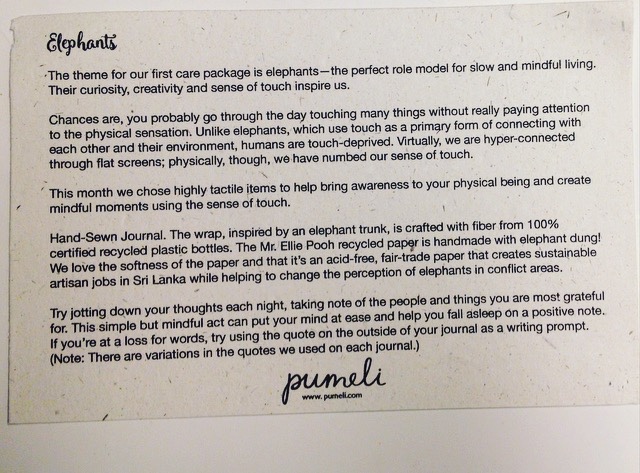 Elephants
The theme for our first care package is elephants—the perfect role model for slow and mindful living.
Their curiosity, creativity and sense of touch inspire us.
Chances are, you probably go through the day touching many things without really paying attention
to the physical sensation. Unlike elephants, which use touch as a primary form of connecting with
each other and their environment, humans are touch-deprived. Virtually, we are hyper-connected
through flat screens; physically, though, we have numbed our sense of touch.
This month we chose highly tactile items to help bring awareness to your physical being and create
mindful moments using the sense of touch.
Hand-Sewn Journal. The wrap, inspired by an elephant trunk, is crafted with fiber from 100%
certified recycled plastic bottles. The Mr. Ellie Pooh recycled paper is handmade with elephant dung!
We love the softness of the paper and that it's an acid-free, fair-trade paper that creates sustainable
artisan jobs in Sri Lanka while helping to change the perception of elephants in conflict areas.
Try jotting down your thoughts each night, taking note of the people and things you are most grateful
for. This simple but mindful act can put your mind at ease and help you fall asleep on a positive note.
If you're at a loss for words, try using the quote on the outside of your journal as a writing prompt.
(Note: There are variations in the quotes we used on each journal.)
pumeli
www.pumeli.com